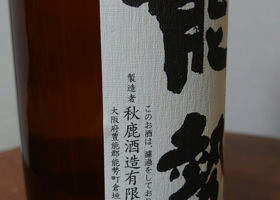 能勢
このお酒は、濾過をしており
製造者
秋鹿酒造有限
大阪府豊能郡能勢町倉垣